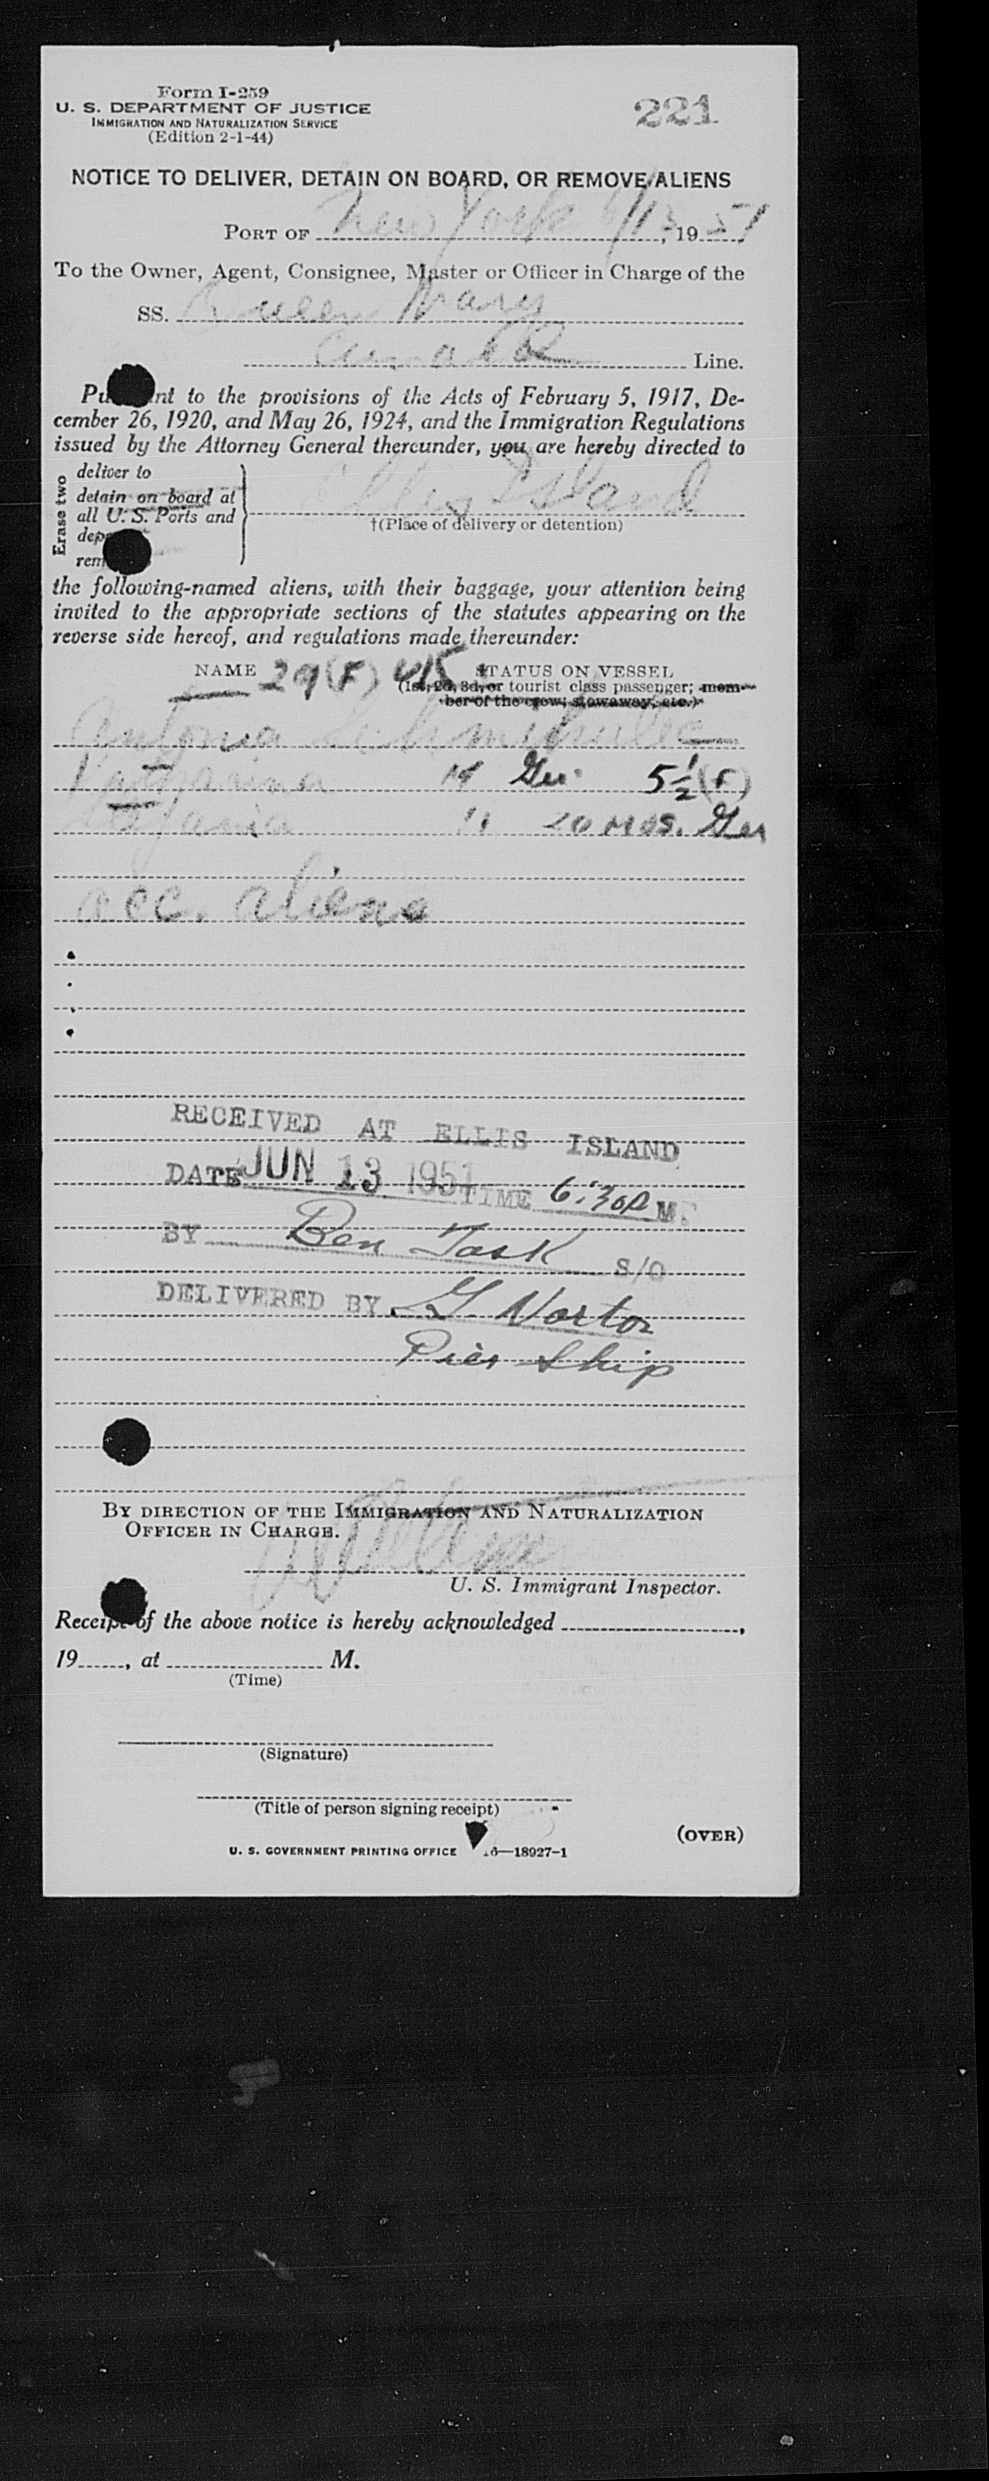 Form I-259
U. S. DEPARTMENT OF JUSTICE
IMMIGRATION AND NATURALIZATION SERVICE
(Edition 2-1-44)
221
NOTICE TO DELIVER, DETAIN ON BOARD, OR REMOVE ALIENS
PORT OF New York 6/13, 1951
To the Owner, Agent, Consignee, Master or Officer in Charge of the
SS. Queen Mary
Cunard Line.
Pu nt to the provisions of the Acts of February 5, 1917, De-
cember 26, 1920, and May 26, 1924, and the Immigration Regulations
issued by the Attorney General thereunder, you are hereby directed to
Erase two
deliver to
detain on board at
all U. S. Ports and
dep
rem
Ellis Island
†(Place of delivery or detention)
the following-named aliens, with their baggage, your attention being
invited to the appropriate sections of the statutes appearing on the
reverse side hereof, and regulations made thereunder:
NAME 29 (F) STATUS ON VESSEL
(1st, 2d, 3d, or tourist class passenger; mem-
ber of the crew; stowaway, etc.)
Antonia
Katharina 14 Ger. 5½ (F)
" 20 mos. Ger
acc. aliens
RECEIVED AT ELLIS ISLAND
DATE JUN 13 1951 TIME 6:30P M.
BY Ben Task S/O
DELIVERED BY G. Norton
Pier Ship
BY DIRECTION OF THE IMMIGRATION AND NATURALIZATION
OFFICER IN CHARGE.
U. S. Immigrant Inspector.
Receipt of the above notice is hereby acknowledged ,
19 , at M.
(Time)
(Signature)
(Title of person signing receipt)
(OVER)
U. S. GOVERNMENT PRINTING OFFICE 16—18927-1